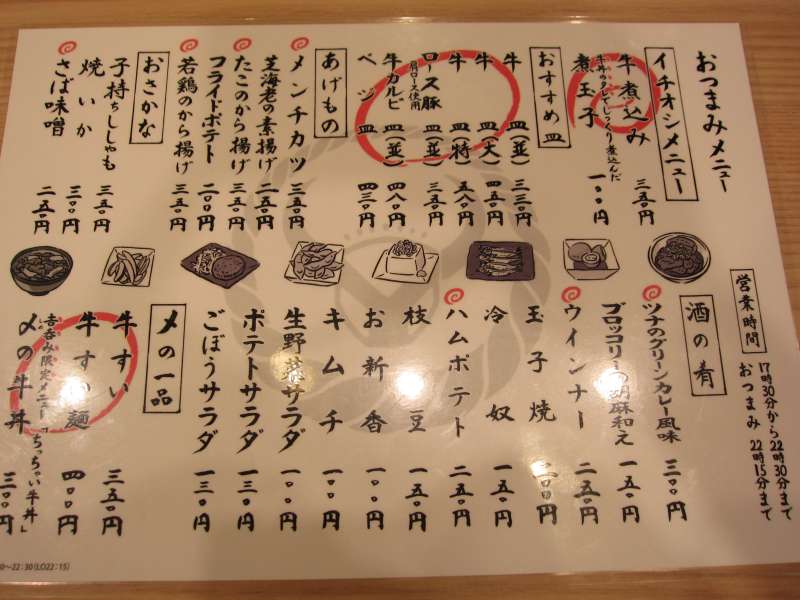 おつまみメニュー
イチオシメニュー
牛煮込み 三五〇円
牛丼のタレでじっくり煮込んだ
煮玉子 一〇〇円
おすすめ皿
牛皿(並) 三三〇円
牛皿(大) 四五〇円
牛皿(特) 五八〇円
ロース豚皿(並) 三五〇円
肩ロース使用
牛カルビ皿(並) 四八〇円
ベジ皿 四三〇円
あげもの
メンチカツ 三五〇円
芝海老の素揚げ 二五〇円
たこのから揚げ 三五〇円
フライドポテト 二〇〇円
若鶏のから揚げ 三五〇円
おさかな
子持ちししゃも 三五〇円
焼いか 三〇〇円
さば味噌 二五〇円
営業時間
17時30分から22時30分まで
おつまみ 22時15分まで
酒の肴
ツナのグリーンカレー風味 三〇〇円
ブロッコリーの胡麻和え 一五〇円
ウインナー 二五〇円
玉子焼 二〇〇円
冷奴 一五〇円
ハムポテト 二五〇円
枝豆 一五〇円
お新香 一〇〇円
キムチ 一〇〇円
生野菜サラダ 一〇〇円
ポテトサラダ 一三〇円
ごぼうサラダ 一三〇円
〆の一品
牛すい 三五〇円
牛すい麺 四〇〇円
吉呑み限定メニュー「ちっちゃい牛丼」
〆の牛丼 三〇〇円
0〜22:30(LO22:15)